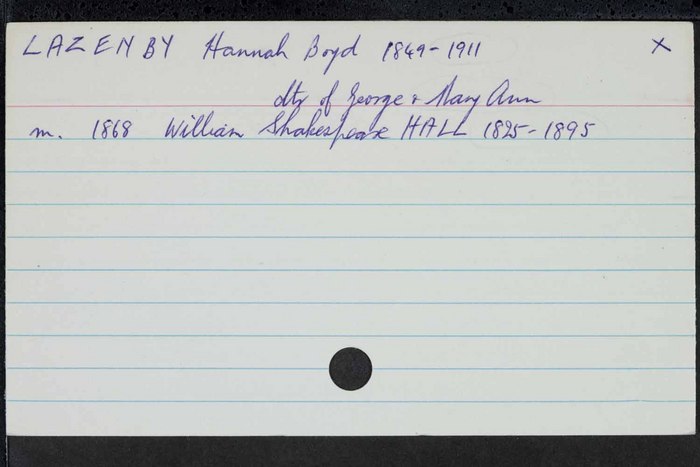 LAZENBY Hannah Boyd 1849-1911 X
dtr of George & Mary Ann
m. 1868 William Shakespeare HALL 1825-1895